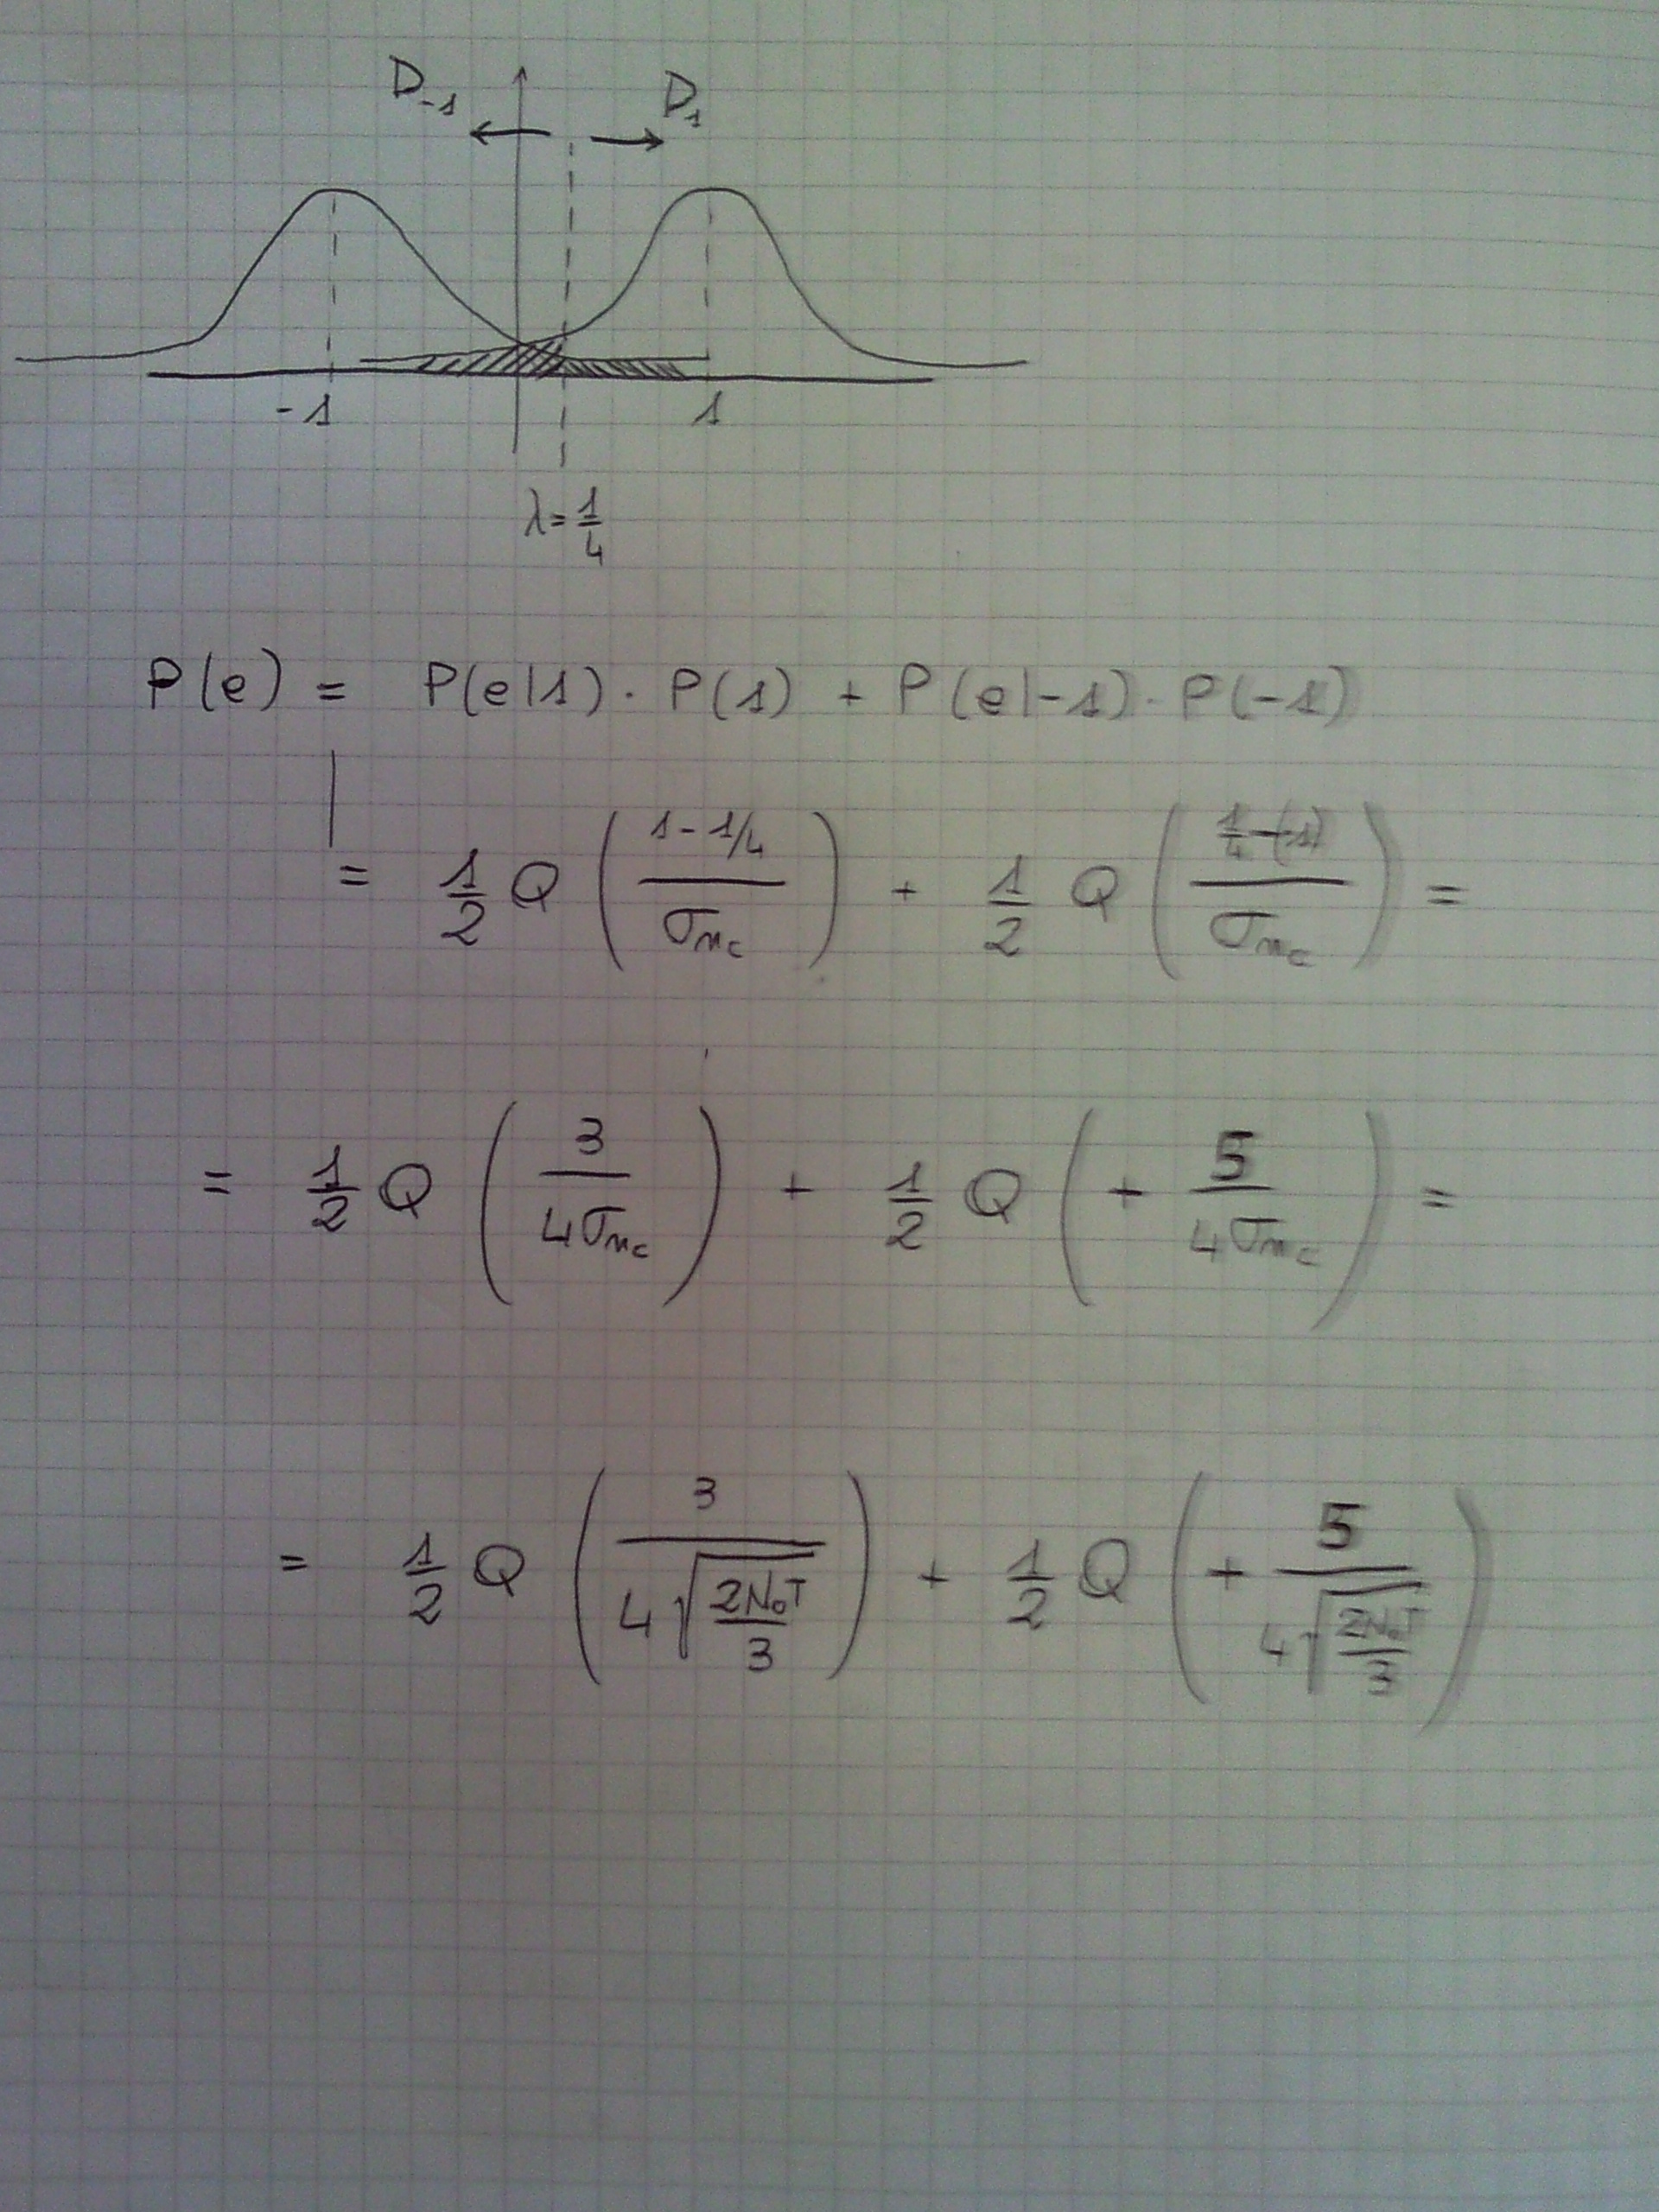 D₋₁ D₁
-1 1
λ = 1/4
P(e) = P(e|1) · P(1) + P(e|-1) · P(-1)
= 1/2 Q ( (1 - 1/4) / σₙc ) + 1/2 Q ( (1/4 - (-1)) / σₙc ) =
= 1/2 Q ( 3 / 4σₙc ) + 1/2 Q ( + 5 / 4σₙc ) =
= 1/2 Q ( 3 / 4√(2N₀T/3) ) + 1/2 Q ( + 5 / 4√(2N₀T/3) )